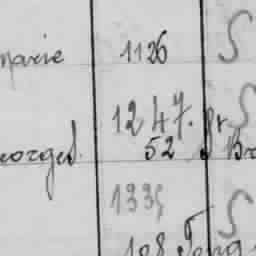 marie 1126 S
1247. Pr S
eorges. 52
1335 S
108